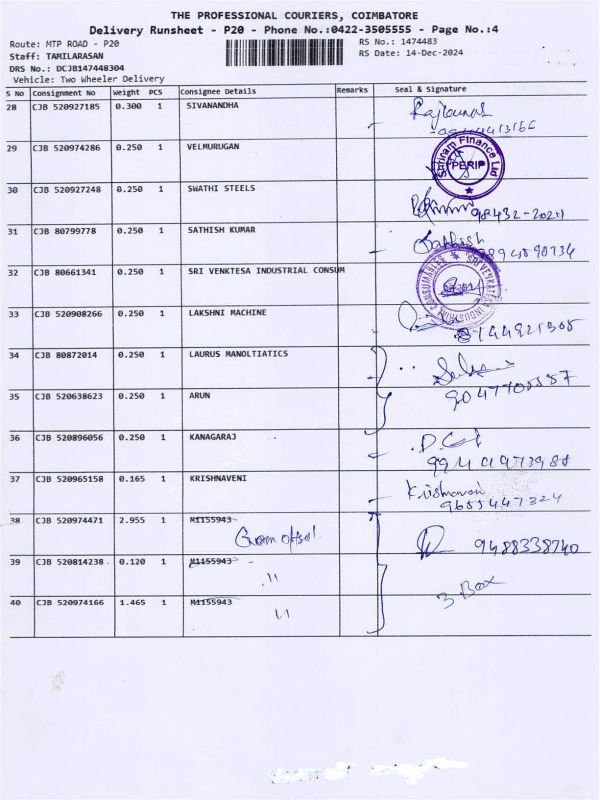 THE PROFESSIONAL COURIERS, COIMBATORE
Delivery Runsheet - P20 - Phone No.:0422-3505555 - Page No.:4
Route: MTP ROAD - P20 RS No.: 1474483
Staff: TAMILARASAN RS Date: 14-Dec-2024
DRS No.: DCJB147448304
Vehicle: Two Wheeler Delivery
S No Consignment No Weight PCS Consignee Details Remarks Seal & Signature
28 CJB 520927185 0.300 1 SIVANANDHA
29 CJB 520974286 0.250 1 VELMURUGAN Shriram Finance Ltd
30 CJB 520927248 0.250 1 SWATHI STEELS
31 CJB 80799778 0.250 1 SATHISH KUMAR Sathish
32 CJB 80661341 0.250 1 SRI VENKTESA INDUSTRIAL CONSUM
33 CJB 520908266 0.250 1 LAKSHNI MACHINE
34 CJB 80872014 0.250 1 LAURUS MANOLTIATICS
35 CJB 520638623 0.250 1 ARUN
36 CJB 520896056 0.250 1 KANAGARAJ
37 CJB 520965158 0.165 1 KRISHNAVENI Krishnaveni
9655447324
38 CJB 520974471 2.955 1 M1155943
9488338740
39 CJB 520814238 0.120 1 M1155943
3 Box
40 CJB 520974166 1.465 1 M1155943